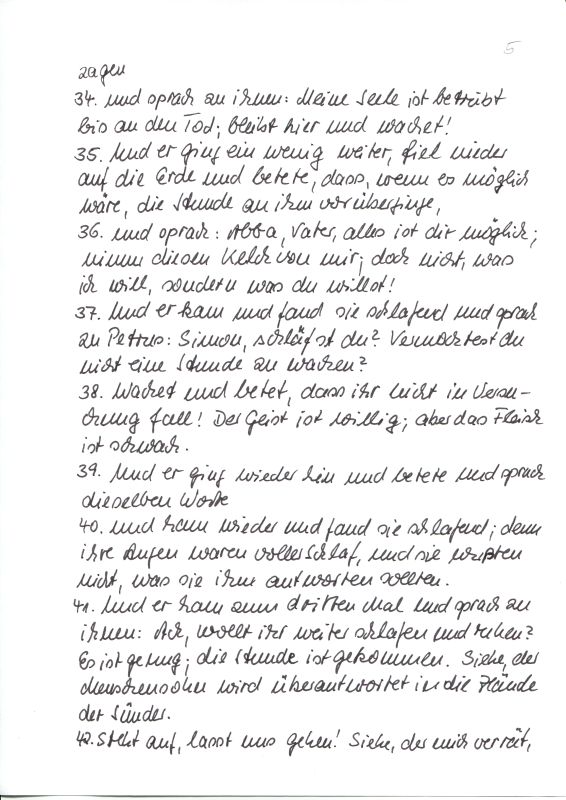 5
zagen
34. und sprach zu ihnen: Meine Seele ist betrübt
bis an den Tod; bleibt hier und wachet!
35. Und er ging ein wenig weiter, fiel nieder
auf die Erde und betete, dass, wenn es möglich
wäre, die Stunde an ihm vorüberginge,
36. und sprach: Abba, Vater, alles ist dir möglich;
nimm diesen Kelch von mir; doch nicht, was
ich will, sondern was du willst!
37. Und er kam und fand sie schlafend und sprach
zu Petrus: Simon, schläfst du? Vermochtest du
nicht eine Stunde zu wachen?
38. Wachet und betet, dass ihr nicht in Versu-
chung fallt! Der Geist ist willig; aber das Fleisch
ist schwach.
39. Und er ging wieder hin und betete und sprach
dieselben Worte
40. und kam wieder und fand sie schlafend; denn
ihre Augen waren voller Schlaf, und sie wussten
nicht, was sie ihm antworten sollten.
41. Und er kam zum dritten Mal und sprach zu
ihnen: Ach, wollt ihr weiter schlafen und ruhen?
Es ist genug; die Stunde ist gekommen. Siehe, der
Menschensohn wird überantwortet in die Hände
der Sünder.
42. Steht auf, lasst uns gehen! Siehe, der mich verrät,